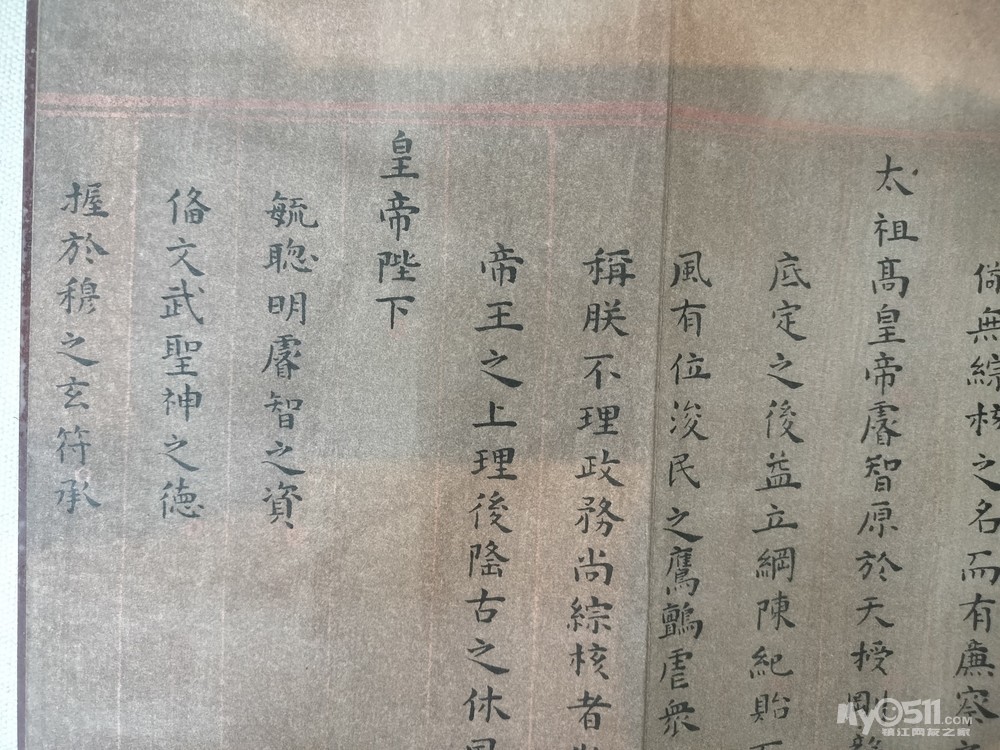 倘無綜核之名而有廉察
太祖高皇帝睿智原於天授剛
底定之後益立綱陳紀貽
風有位浚民之鷹鸇虐衆
稱朕不理政務尚綜核者
帝王之上理後隆古之休
皇帝陛下
毓聦明睿智之資
俻文武聖神之德
握於穆之玄符承
my0511.COM
镇江网友之家